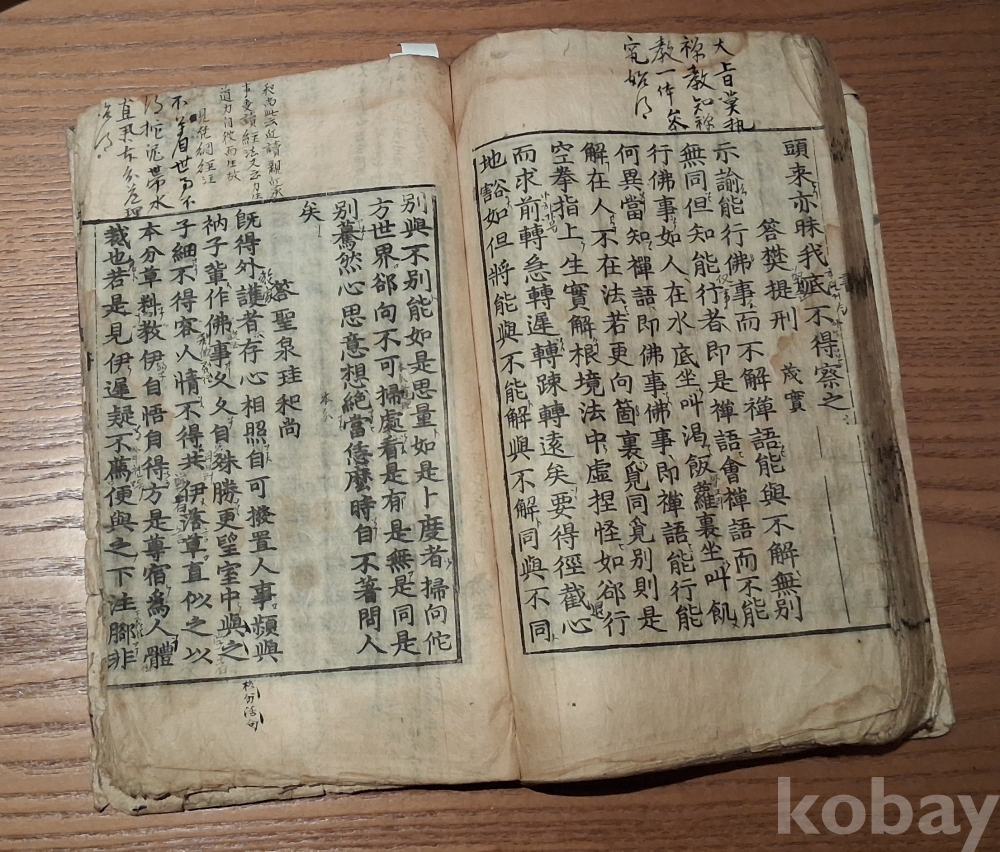 大旨蓂執
禪教知禪
教一体
頭來亦昧我底不得察之
答樊提刑 茂實
示諭能行佛事而不解禪語能與不解無別
無同但知能行者即是禪語會禪語而不能
行佛事如人在水底坐叫渴飯籮裏坐叫飢
何異當知禪語即佛事佛事即禪語能行能
解在人不在法若更向箇裏覓同覓別則是
空拳指上生實解根境法中虛捏怪如郤行
而求前轉急轉遲轉踈轉遠矣要得徑截心
地豁如但將能與不能解與不解同與不同
別與不別能如是思量如是卜度者掃向佗
方世界郤向不可掃處看是有是無是同是
別驀然心思意想絶當恁麽時自不著問人
矣
答聖泉珪和尚
旣得外護者存心相照自可撥置人事頻與
衲子軰作佛事乆乆自殊勝更望室中與之
子細不得容人情不得共伊落草直似之以
本分草料教伊自悟自得方是尊宿爲人體
裁也若是見伊遲疑不薦便與之下注腳非
不着世
拕泥帶水
kobay